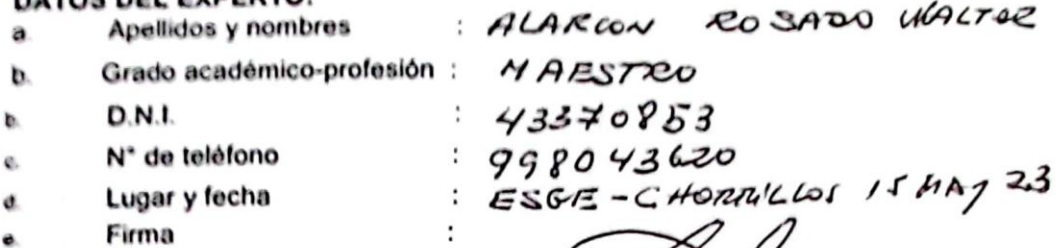 DATOS DEL EXPERTO:
a. Apellidos y nombres : ALARCON ROSADO WALTER
b. Grado académico-profesión : MAESTRO
b. D.N.I. : 43370853
c. N° de teléfono : 998043620
d. Lugar y fecha : ESGE - CHORRILLOS 15 MAY 23
e. Firma :